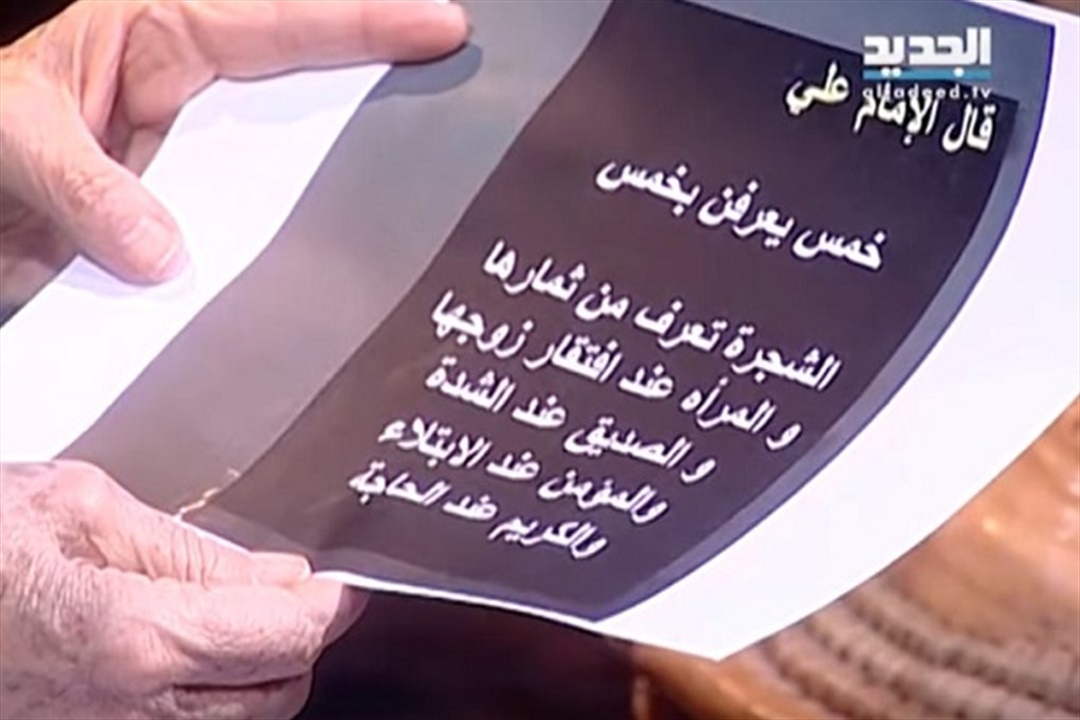 الجديد
aljadeed.tv
قال الإمام علي
خمس يعرفن بخمس
الشجرة تعرف من ثمارها
و المرأه عند افتقار زوجها
و الصديق عند الشدة
والمؤمن عند الابتلاء
والكريم عند الحاجة